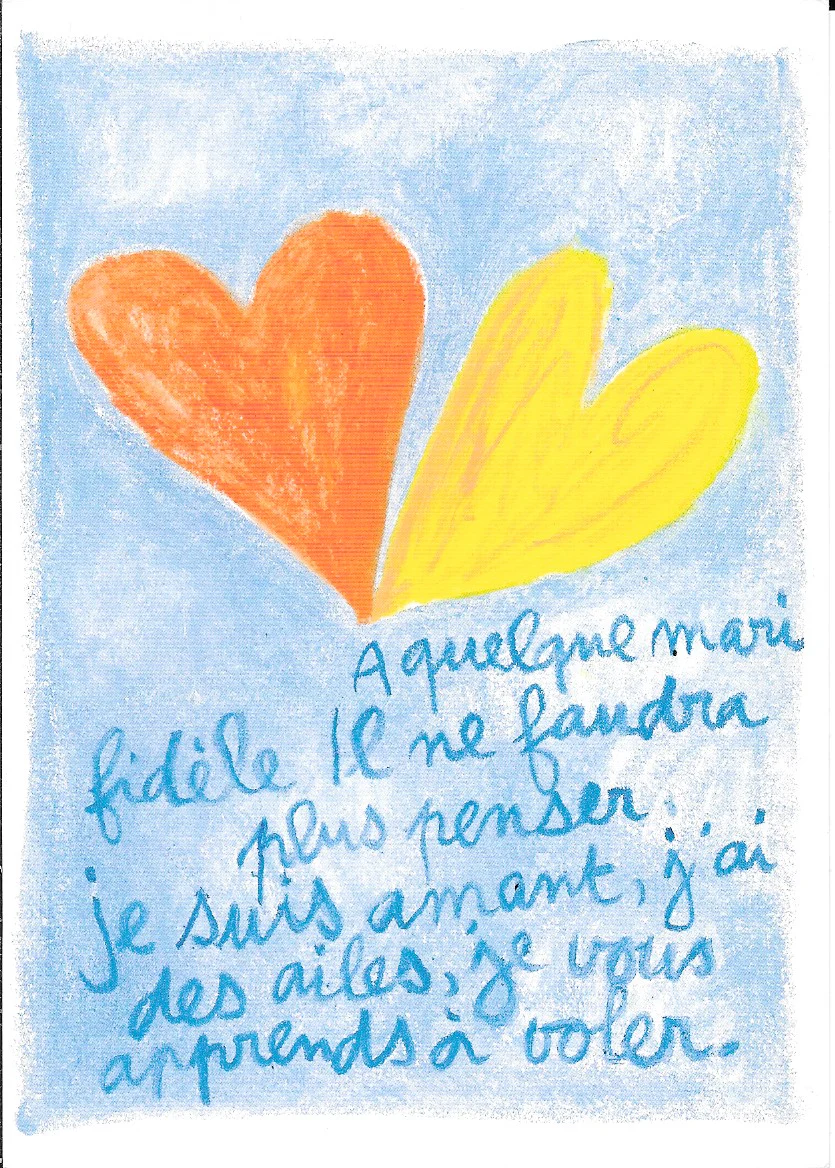 A quelque mari
fidèle Il ne faudra
plus penser.
je suis amant, j'ai
des ailes, je vous
apprends à voler.